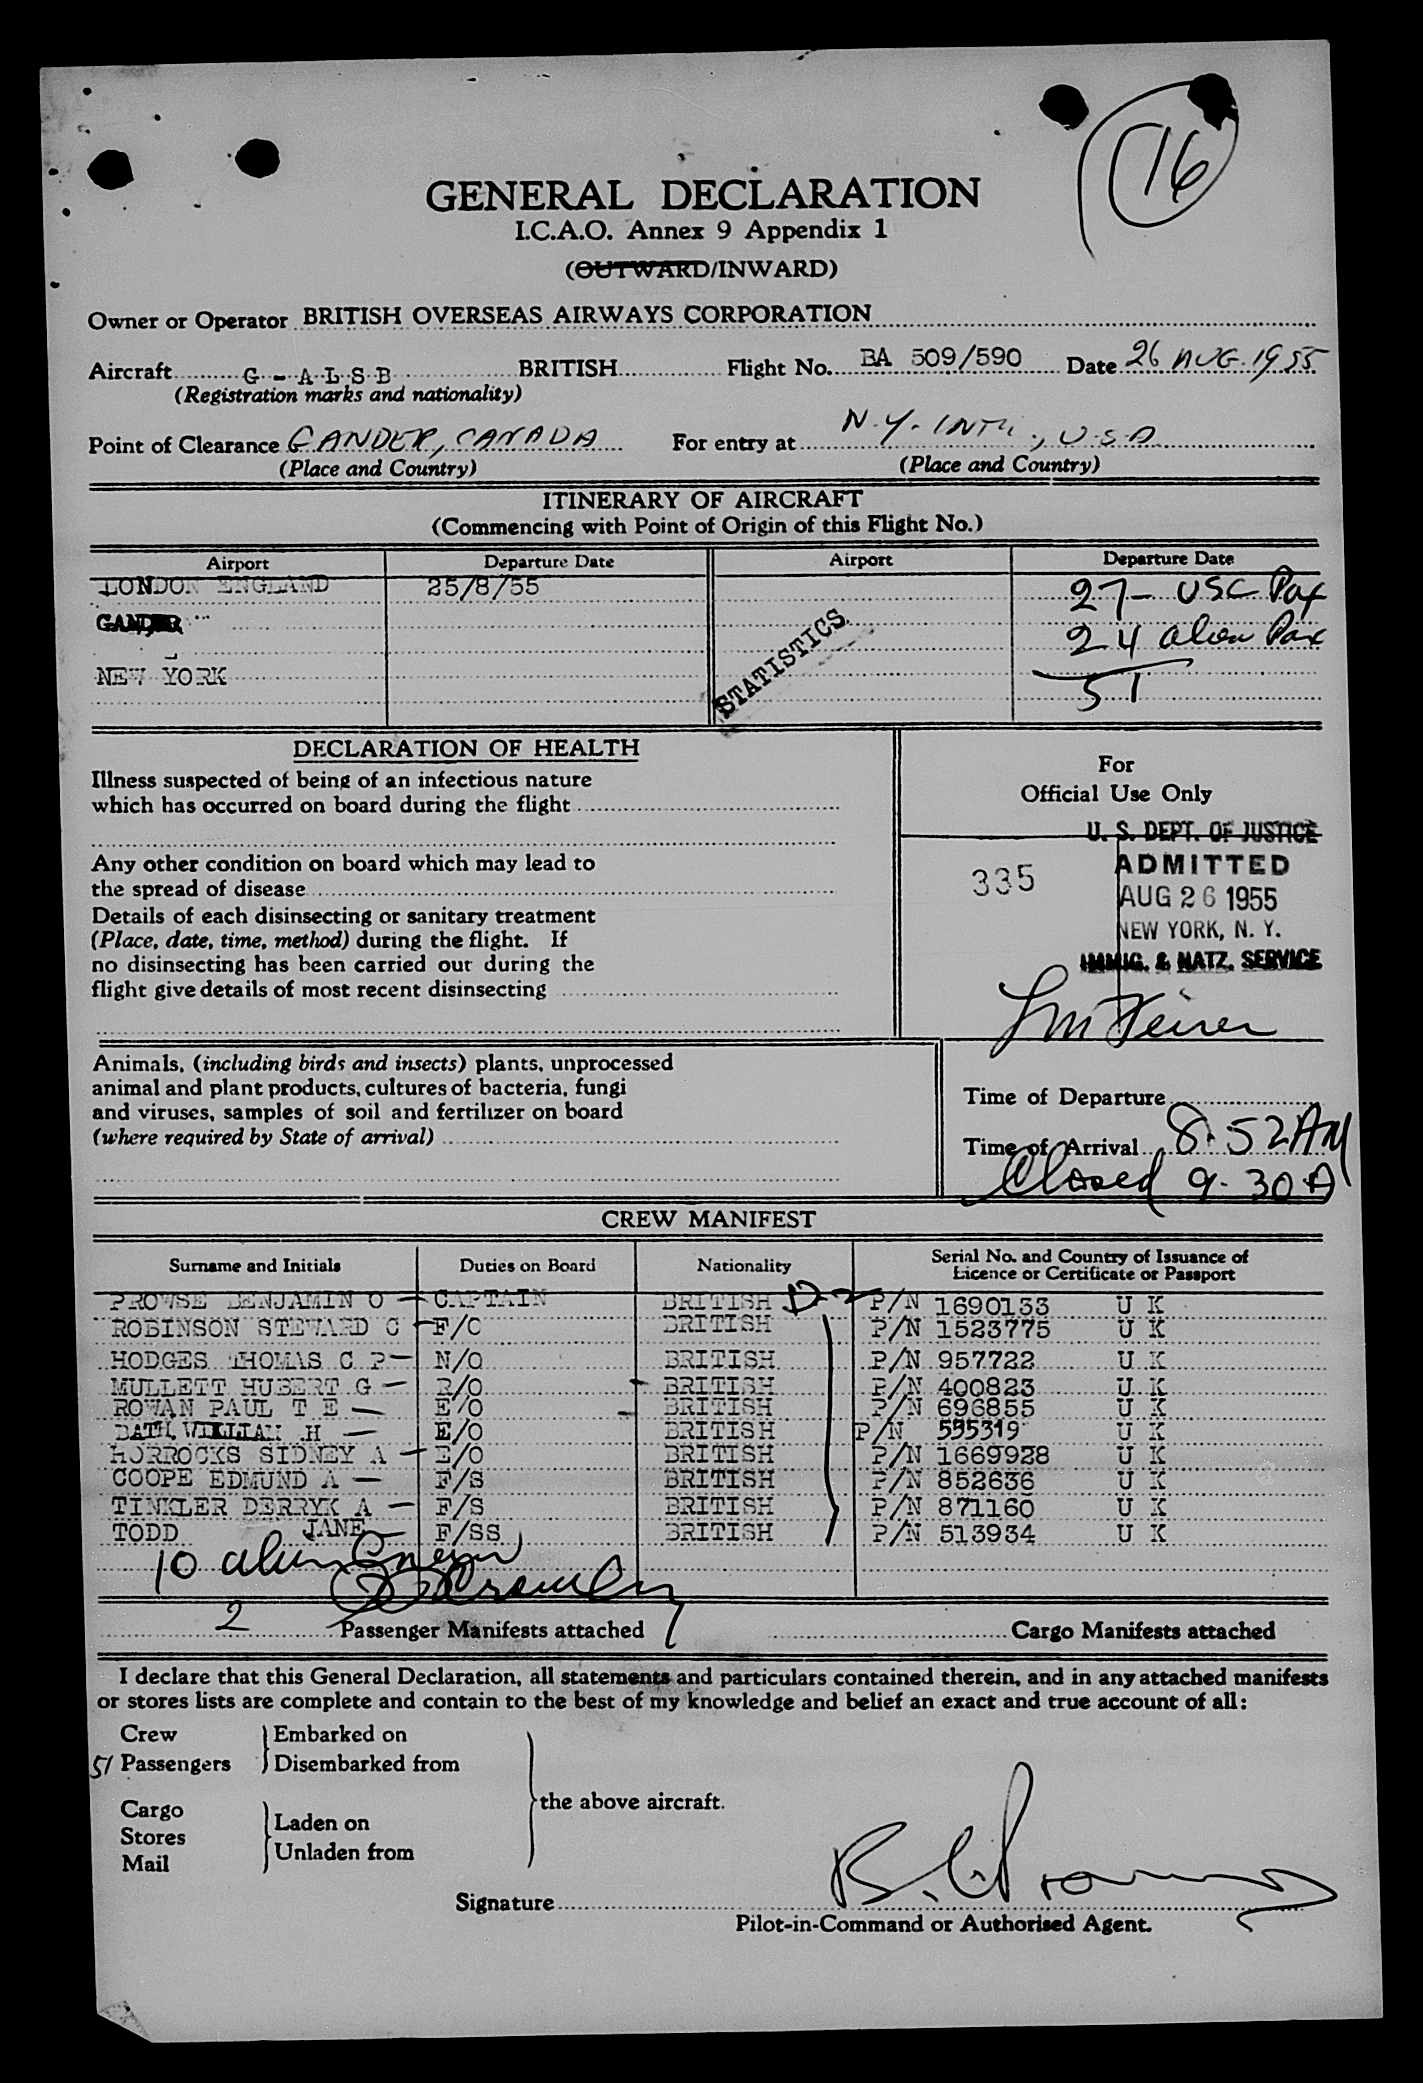 16
GENERAL DECLARATION
I.C.A.O. Annex 9 Appendix 1
(OUTWARD/INWARD)
Owner or Operator BRITISH OVERSEAS AIRWAYS CORPORATION
Aircraft G - A L S B BRITISH Flight No. BA 509/590 Date 26 AUG. 1955
(Registration marks and nationality)
Point of Clearance GANDER, CANADA For entry at N.Y. INTL., U.S.A
(Place and Country) (Place and Country)
ITINERARY OF AIRCRAFT
(Commencing with Point of Origin of this Flight No.)
Airport Departure Date Airport Departure Date
LONDON ENGLAND 25/8/55 27 - USC Pax
GANDER 24 alien Pax
NEW YORK 51
STATISTICS
DECLARATION OF HEALTH
Illness suspected of being of an infectious nature
which has occurred on board during the flight
Any other condition on board which may lead to
the spread of disease
Details of each disinsecting or sanitary treatment
(Place, date, time, method) during the flight. If
no disinsecting has been carried out during the
flight give details of most recent disinsecting
For
Official Use Only
335
U. S. DEPT. OF JUSTICE
ADMITTED
AUG 26 1955
NEW YORK, N. Y.
IMMIG. & NATZ. SERVICE
Animals, (including birds and insects) plants, unprocessed
animal and plant products, cultures of bacteria, fungi
and viruses, samples of soil and fertilizer on board
(where required by State of arrival)
Time of Departure
Time of Arrival 8.52 AM
Closed 9.30 A
CREW MANIFEST
Surname and Initials Duties on Board Nationality Serial No. and Country of Issuance of
Licence or Certificate or Passport
PROWSE BENJAMIN O — CAPTAIN BRITISH D-2 P/N 1690133 U K
ROBINSON STEWARD C — F/O BRITISH P/N 1523775 U K
HODGES THOMAS C P — N/O BRITISH P/N 957722 U K
MULLETT HUBERT G — R/O BRITISH P/N 400823 U K
ROWAN PAUL T E — E/O BRITISH P/N 696855 U K
BATH, WILLIAM H — E/O BRITISH P/N 595319 U K
HORROCKS SIDNEY A — E/O BRITISH P/N 1669928 U K
COOPE EDMUND A — F/S BRITISH P/N 852636 U K
TINKLER DERRYK A — F/S BRITISH P/N 871160 U K
TODD JANE — F/SS BRITISH P/N 513934 U K
10 alien
2 Passenger Manifests attached Cargo Manifests attached
I declare that this General Declaration, all statements and particulars contained therein, and in any attached manifests
or stores lists are complete and contain to the best of my knowledge and belief an exact and true account of all:
Crew Embarked on
51 Passengers Disembarked from
the above aircraft.
Cargo
Stores Laden on
Mail Unladen from
Signature
Pilot-in-Command or Authorised Agent.